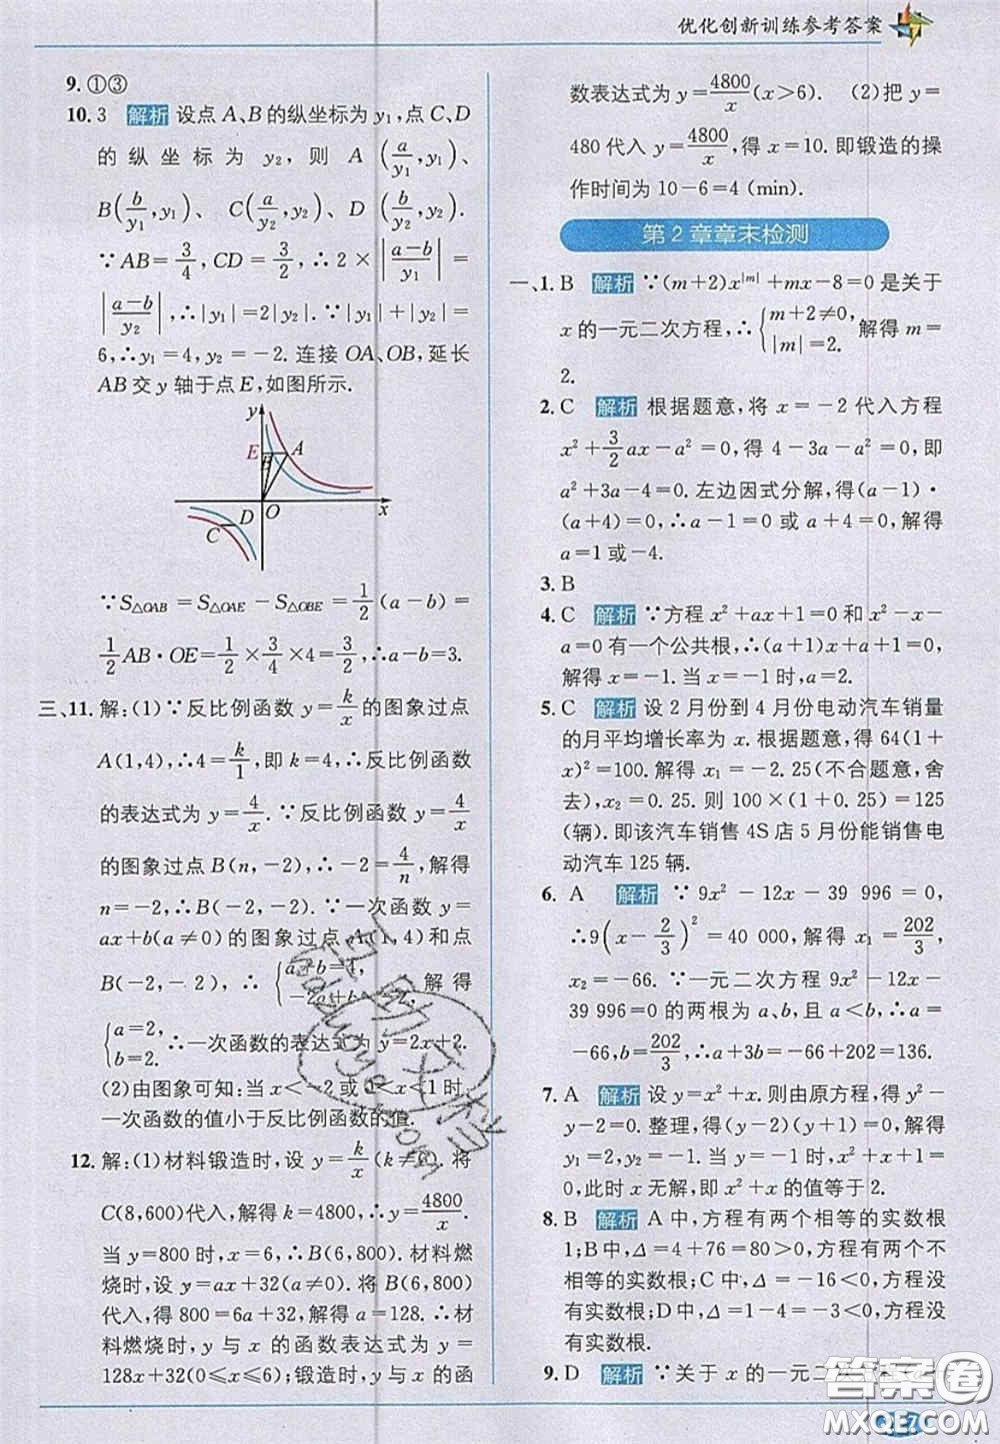 优化创新训练参考答案
9. ①③
10. 3 解析 设点 A、B 的纵坐标为 y₁,点 C、D
的纵坐标为 y₂,则 A(a/y₁,y₁)、
B(b/y₁,y₁)、C(a/y₂,y₂)、D(b/y₂,y₂).
∵AB=3/4,CD=3/2,∴2×|(a-b)/y₁|=
|(a-b)/y₂|,∴|y₁|=2|y₂|.∵|y₁|+|y₂|=
6,∴y₁=4,y₂=-2. 连接 OA、OB,延长
AB 交 y 轴于点 E,如图所示.
y
E B A
D O x
C
∵S△OAB=S△OAE-S△OBE=1/2(a-b)=
1/2AB·OE=1/2×3/4×4=3/2,∴a-b=3.
三、11. 解:(1)∵反比例函数 y=k/x的图象过点
A(1,4),∴4=k/1,即 k=4,∴反比例函数
的表达式为 y=4/x.∵反比例函数 y=4/x
的图象过点 B(n,-2),∴-2=4/n,解得
n=-2,∴B(-2,-2).∵一次函数 y=
ax+b(a≠0)的图象过点 A(1,4)和点
B(-2,-2),∴{a+b=4, -2a+b=-2, 解得
{a=2, b=2. ∴一次函数的表达式为 y=2x+2.
(2)由图象可知:当 x<-2 或 0<x<1 时,
一次函数的值小于反比例函数的值.
12. 解:(1)材料锻造时,设 y=k/x(k≠0). 将
C(8,600)代入,解得 k=4800,∴y=4800/x.
当 y=800 时,x=6,∴B(6,800). 材料燃
烧时,设 y=ax+32(a≠0). 将 B(6,800)
代入,得 800=6a+32,解得 a=128.∴材
料燃烧时,y 与 x 的函数表达式为 y=
128x+32(0≤x≤6);锻造时,y 与 x 的函
数表达式为 y=4800/x(x>6). (2)把 y=
480 代入 y=4800/x,得 x=10. 即锻造的操
作时间为 10-6=4 (min).
第 2 章章末检测
一、1. B 解析 ∵(m+2)x|m|+mx-8=0 是关于
x 的一元二次方程,∴{m+2≠0, |m|=2. 解得 m=
2.
2. C 解析 根据题意,将 x=-2 代入方程
x²+3/2ax-a²=0,得 4-3a-a²=0,即
a²+3a-4=0. 左边因式分解,得(a-1)·
(a+4)=0,∴a-1=0 或 a+4=0,解得
a=1 或-4.
3. B
4. C 解析 ∵方程 x²+ax+1=0 和 x²-x-
a=0 有一个公共根,∴(a+1)x+a+1=
0,解得 x=-1. 当 x=-1 时,a=2.
5. C 解析 设 2 月份到 4 月份电动汽车销量
的月平均增长率为 x. 根据题意,得 64(1+
x)²=100. 解得 x₁=-2.25(不合题意,舍
去),x₂=0.25. 则 100×(1+0.25)=125
(辆). 即该汽车销售 4S 店 5 月份能销售电
动汽车 125 辆.
6. A 解析 ∵9x²-12x-39 996=0,
∴9(x-2/3)²=40 000,解得 x₁=202/3,
x₂=-66.∵一元二次方程 9x²-12x-
39 996=0 的两根为 a、b,且 a<b,∴a=
-66,b=202/3,∴a+3b=-66+202=136.
7. A 解析 设 y=x²+x. 则由原方程,得 y²-
y-2=0. 整理,得(y-2)(y+1)=0. 解得
y₁=2,y₂=-1. 当 y=-1 时,x²+x=-1,
此时 x 无解,即 x²+x 的值等于 2.
8. B 解析 A 中,方程有两个相等的实数根
1;B中,Δ=4+76=80>0,方程有两个不
相等的实数根;C 中,Δ=-16<0,方程没
有实数根;D 中,Δ=1-4=-3<0,方程没
有实数根.
9. D 解析 ∵关于 x 的一元二次
答案圈
MXQE.COM